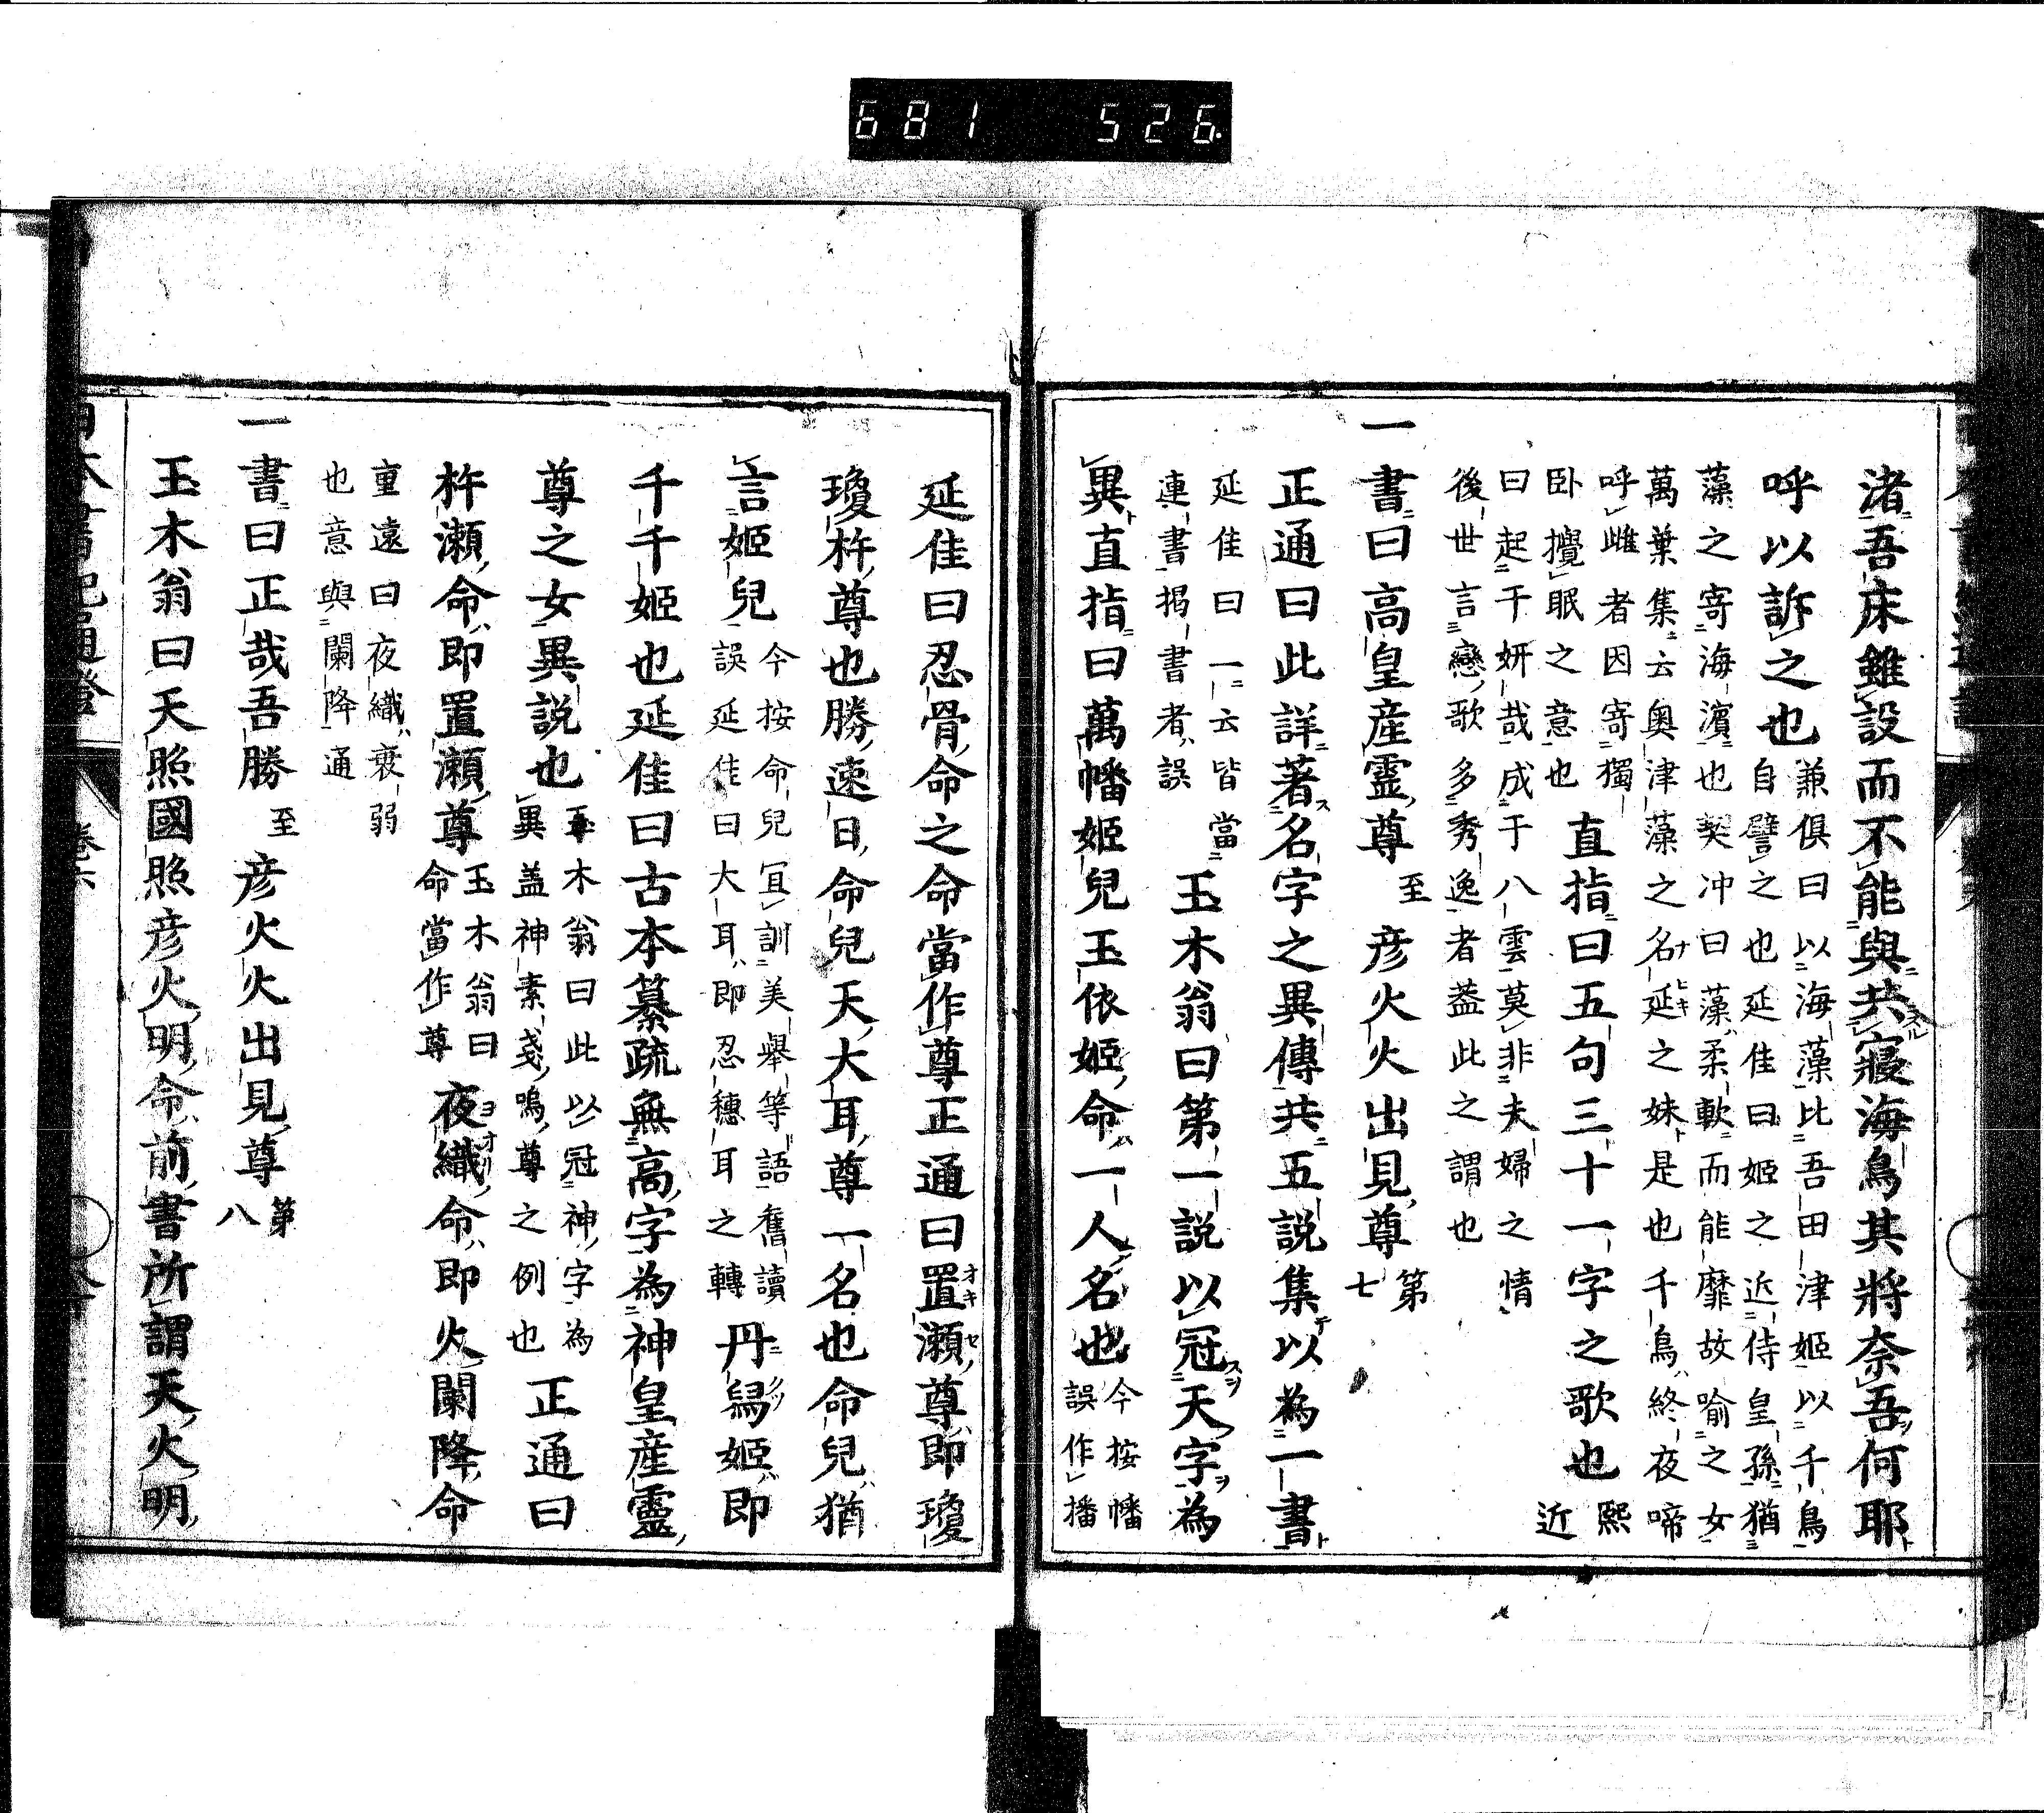 681 526
渚吾床雖設而不能與共寢海鳥其將奈吾何耶
呼以訴之也
兼俱曰以海藻比吾田津姬以千鳥
自譬之也延佳曰姬之近侍皇孫猶
藻之寄海濱也契冲曰藻柔軟而能靡故喻之女
萬葉集云奥津藻之名延之妹是也千鳥終夜啼
呼雌者因寄獨
臥攪眠之意也
直指曰五句三十一字之歌也
熙
近
曰起于妍哉成于八雲莫非夫婦之情
後世言戀歌多秀逸者蓋此之謂也
一書曰高皇産霊尊至彦火火出見尊第七
正通曰此詳著名字之異傳共五說集以為一書
延佳曰一云皆當
連書掲書者誤
玉木翁曰第一說以冠天字為
異直指曰萬幡姬兒玉依姬命一人名也
今按幡
誤作播
延佳曰忍骨命之命當作尊正通曰置瀬尊即瓊
瓊杵尊也勝速日命兒天大耳尊一名也命兒猶
言姬兒
今按命兒宜訓美舉等語舊讀
誤延佳曰大耳即忍穗耳之轉
丹舄姬即
千千姬也延佳曰古本纂疏無高字為神皇産靈
尊之女異説也
玉木翁曰此以冠神字為
異盖神素戔嗚尊之例也
正通曰
杵瀬命即置瀬尊
玉木翁曰
命當作尊
夜織命即火闌降命
重遠曰夜織衰弱
也意與闌降通
一書曰正哉吾勝至彦火火出見尊第八
玉木翁曰天照國照彦火明命前書所謂天火明
日本書紀通證
卷六